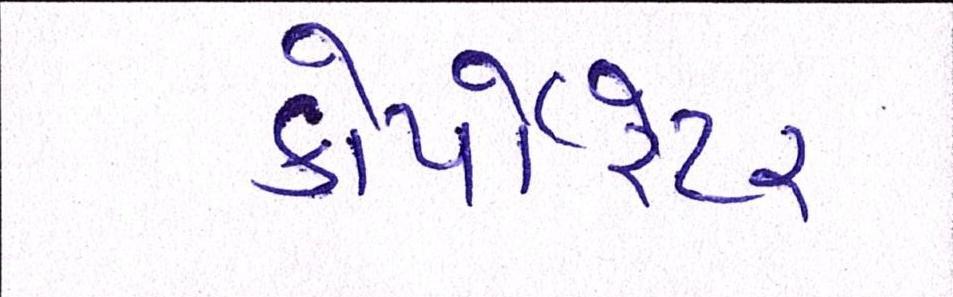 કોર્પોરેટર